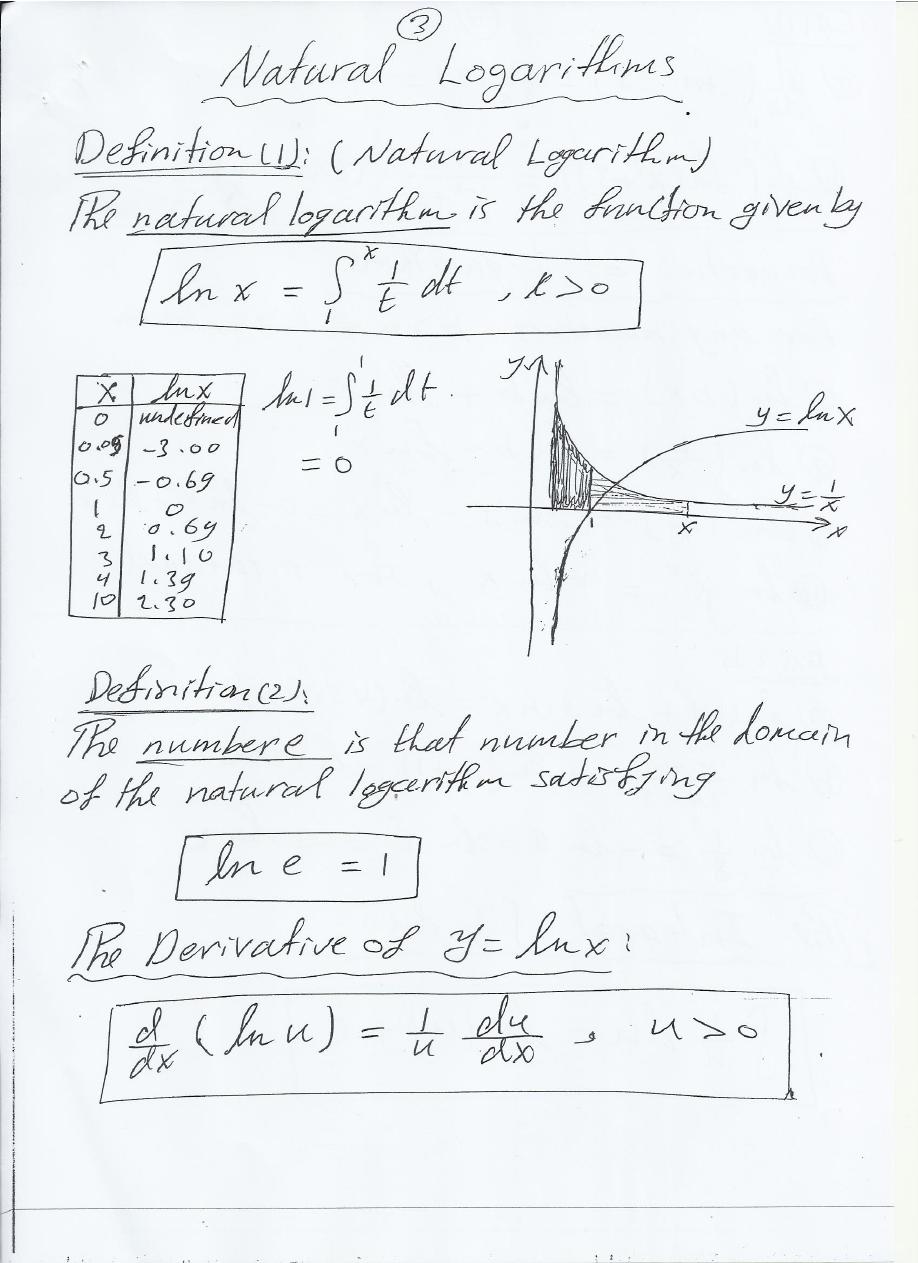 3
Natural Logarithms
Definition (1): (Natural Logarithm)
The natural logarithm is the function given by
ln x = ∫₁ˣ 1/t dt , x>0
x | ln x
0 | undefined
0.05 | -3.00
0.5 | -0.69
1 | 0
2 | 0.69
3 | 1.10
4 | 1.39
10 | 2.30
ln 1 = ∫₁¹ 1/t dt.
= 0
y
y = ln x
y = 1/x
1
x
x
Definition (2):
The number e is that number in the domain
of the natural logarithm satisfying
ln e = 1
The Derivative of y = ln x :
d/dx (ln u) = 1/u du/dx , u>0